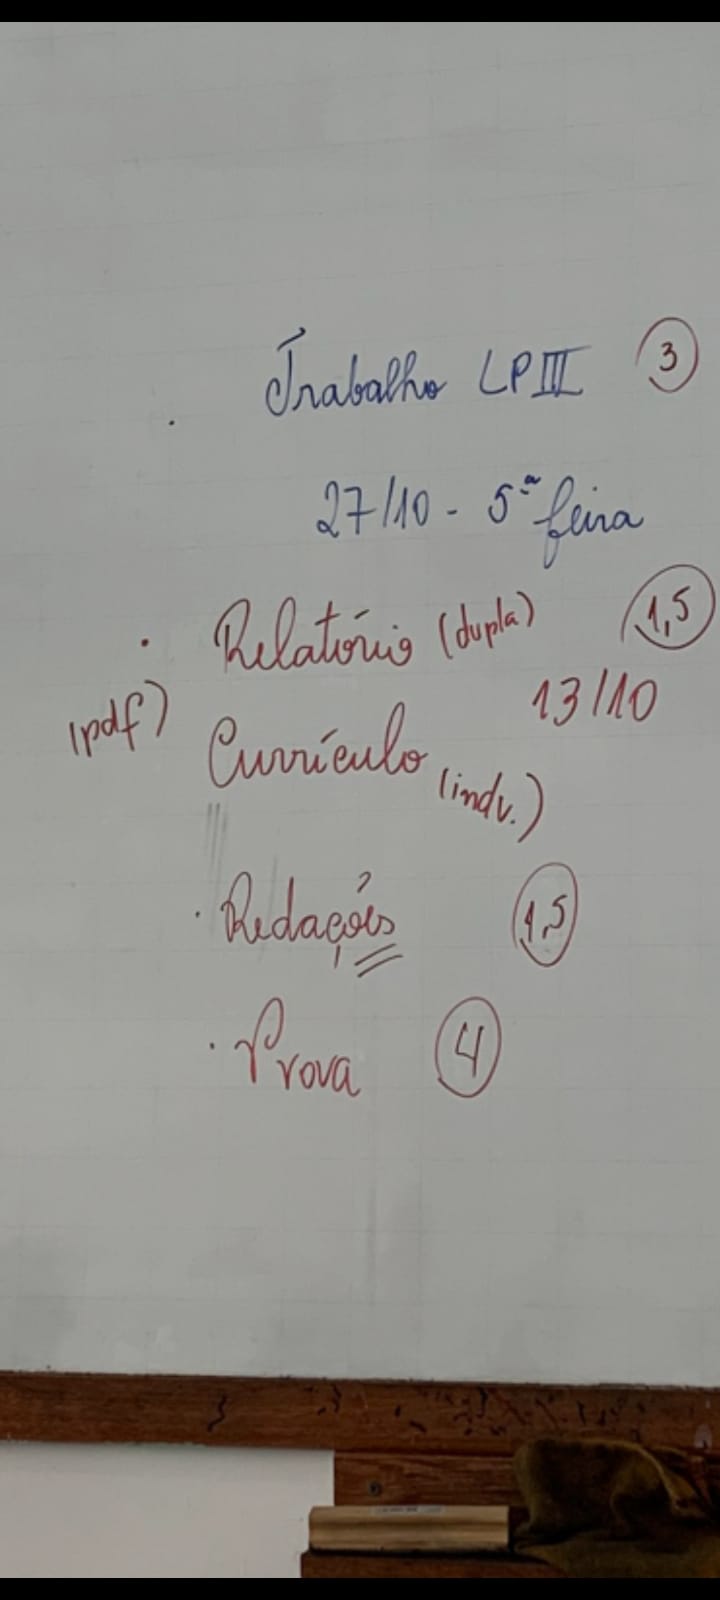 Trabalho LPIII 3
27/10 - 5ª feira
• Relatório (dupla) 1,5
(pdf) 13/10
Currículo (indv.)
• Redações 1,5
• Prova 4